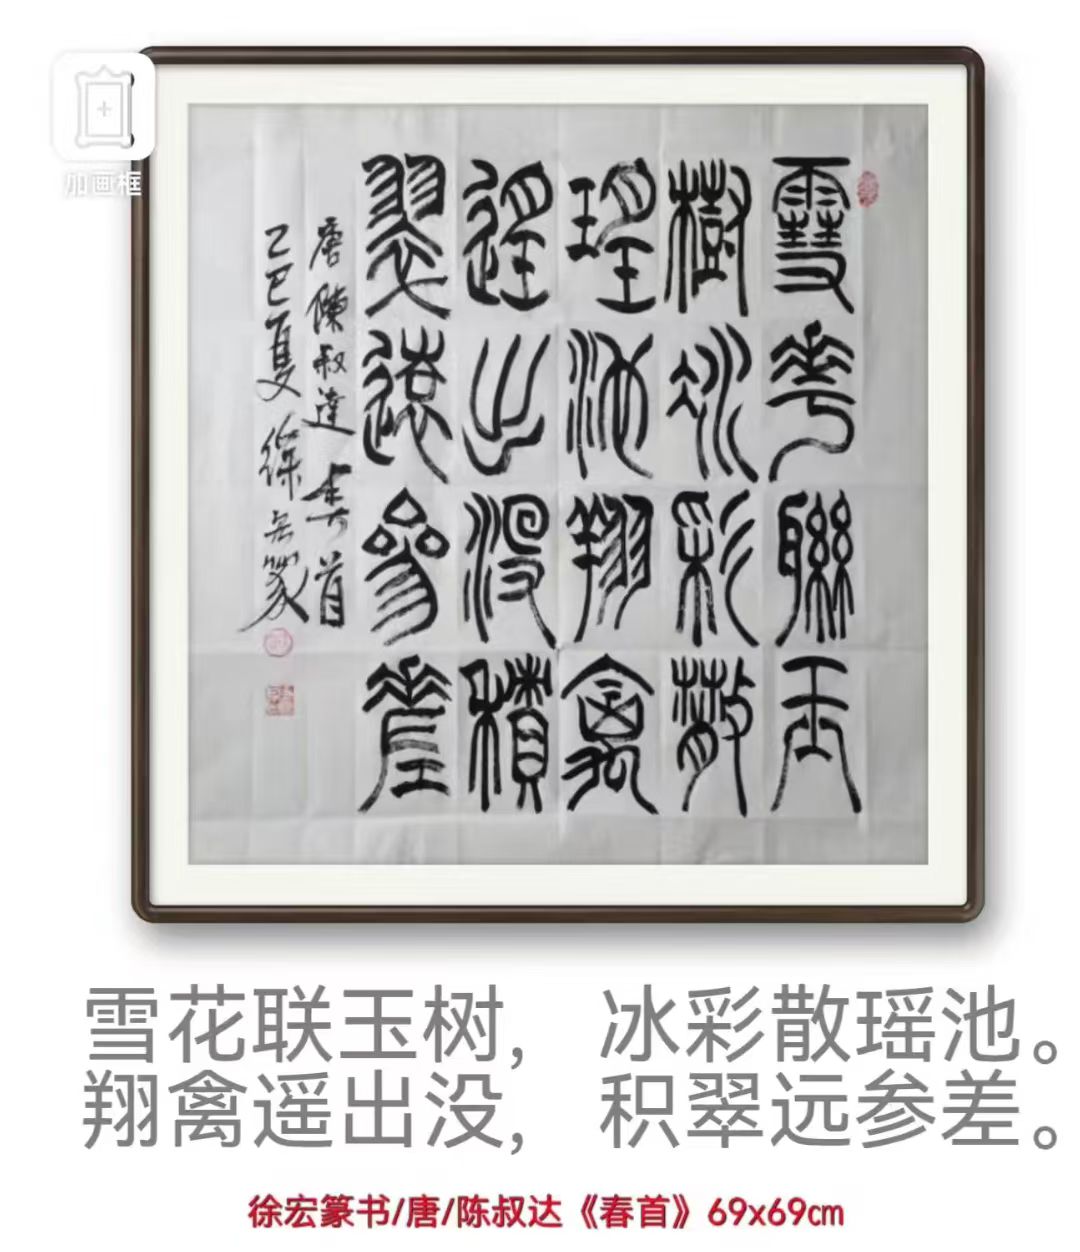 加画框
雪華聯玉
樹冰彩散
瑤池翔禽
遥出没積
翠遠參差
唐陳叔達春首
乙巳夏徐宏篆
雪花联玉树，冰彩散瑶池。
翔禽遥出没，积翠远参差。
徐宏篆书/唐/陈叔达《春首》69x69cm